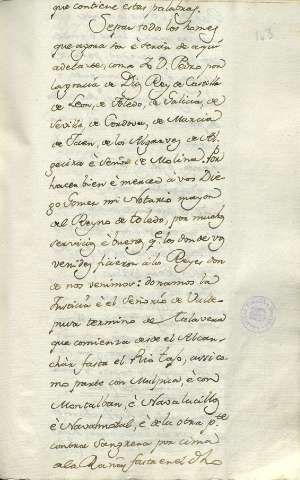 que contiene estas palabras.
Sepan todos los homes
que agora son è serán de aqui
adelante, como Yo D. Pedro por
la gracia de Dios Rey de Castilla
de Leon, de Toledo, de Galicia, de
Sevilla de Cordova, de Murcia
de Jaen, de los Algarves de Al-
gecira è Señor de Molina. Por
hacer bien è merced à vos Die-
go Gomez mi Notario mayor
del Reyno de Toledo, por muchos
servicios è buenos q.e los donde vos
venides ficieron a los Reyes don-
de nos venimos: donamos la
Justicia è el Señorio de Valde-
pusa termino de Talavera
que comienza desde el Alcan-
char fasta el Rio tajo, assi co-
mo parte con Malpica, è con
Montalban, è Navalucillos
è Navalmoral, è de la otra p.te
contra Sangrera por cima
a la Raña, fasta en el dho
163